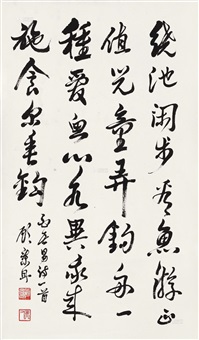 绕池闲步看鱼游正
值儿童弄钓舟一
种爱鱼心各异我来
施食尔垂钩
白居易诗一首